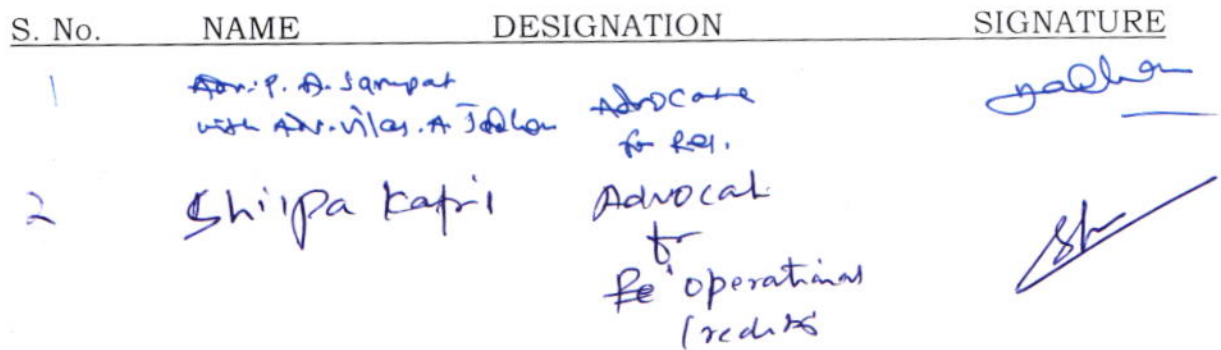 S. No. NAME DESIGNATION SIGNATURE
1 Adv. P. A. Sampat Advocate
with Adv. Vilas. A Jadhav for Res.
2 Shilpa Kapil Advocate
for
operational
Creditor